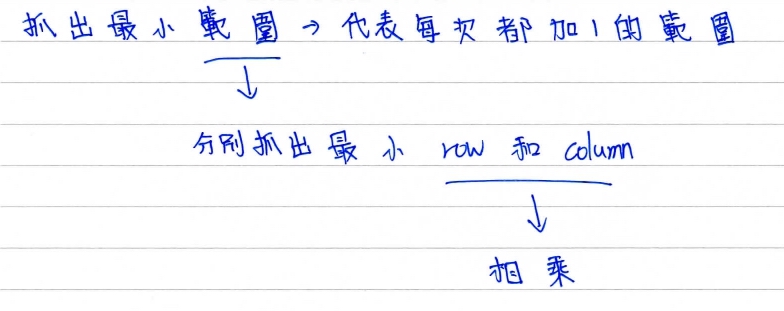 抓出最小範圍→代表每次都加1的範圍
↓
分別抓出最小 row 和 column
↓
相乘